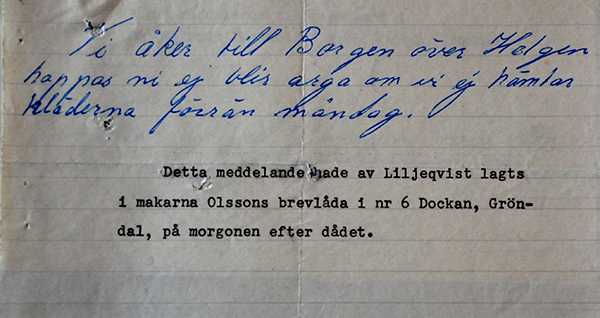 Vi åker till Borgen över Helgen
hoppas ni ej blir arga om vi ej hämtar
kläderna förrän måndag.
Detta meddelande hade av Liljeqvist lagts
i makarna Olssons brevlåda i nr 6 Dockan, Grön-
dal, på morgonen efter dådet.